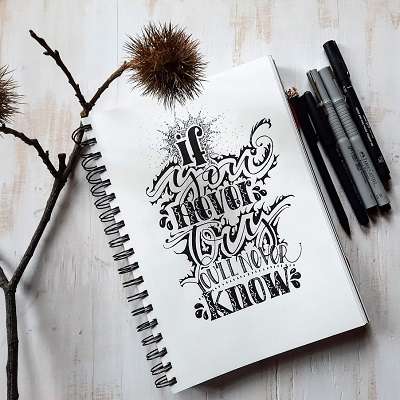 if
you
never
try
YOU'LL NEVER
KNOW